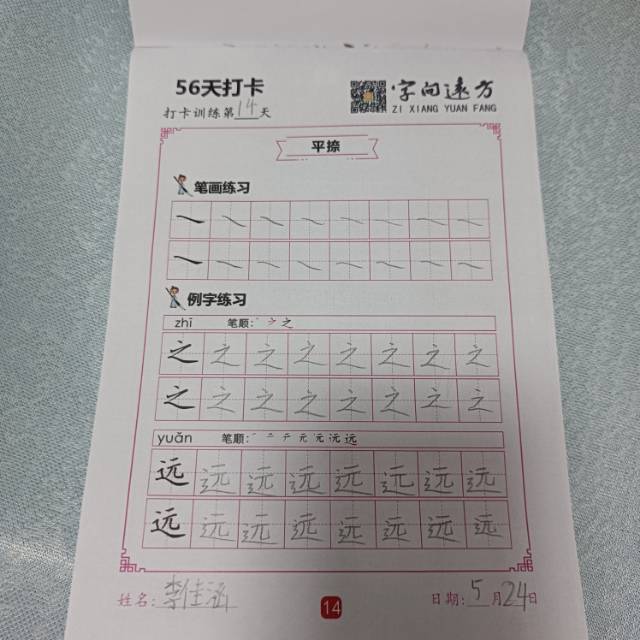 56天打卡
打卡训练第14天
字向遠方
ZI XIANG YUAN FANG
平捺
笔画练习
例字练习
zhī 笔顺:丶㇇之
之之之之之之之之
之之之之之之之之
yuǎn 笔顺:一二テ元元远远
远远远远远远远远
远远远远远远远远
姓名:李佳涵
14
日期:5月24日